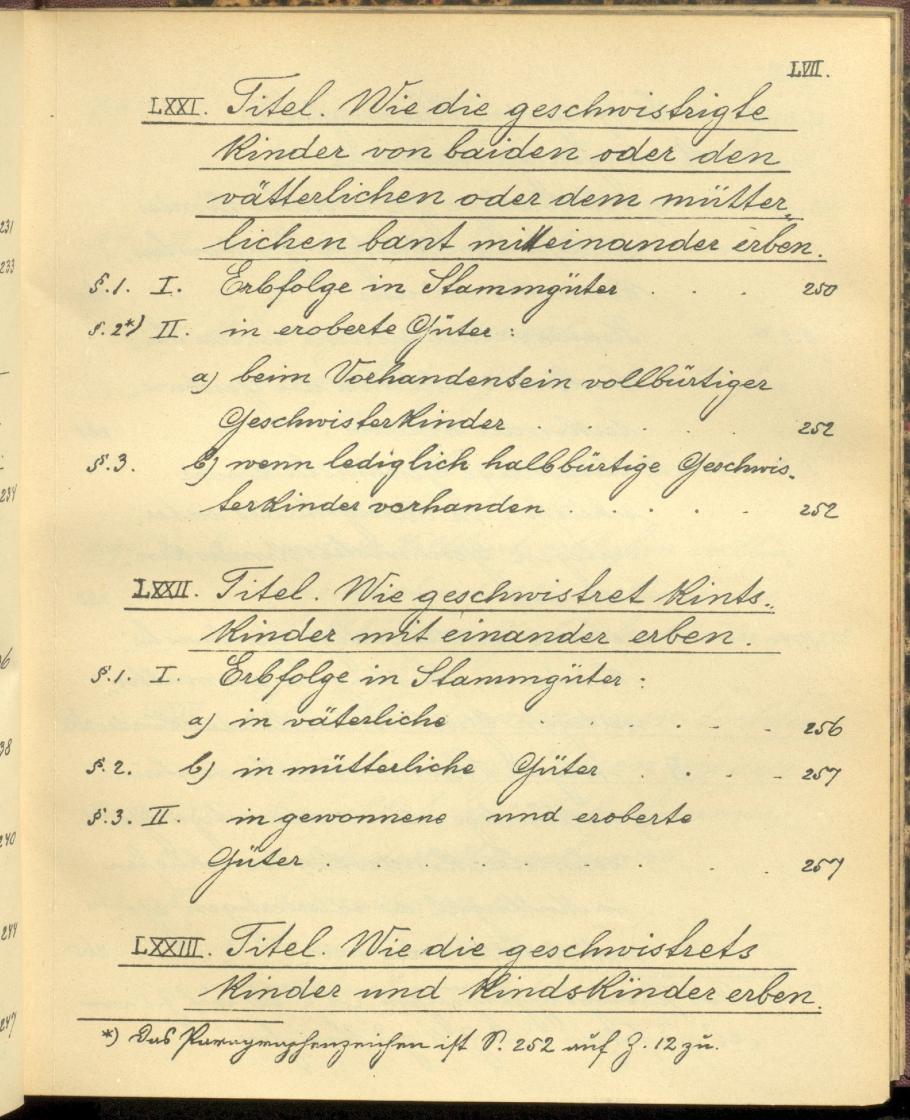 LVII.
LXXI. Titel. Wie die geschwistrigte
Kinder von baiden oder den
vätterlichen oder dem mütter„
lichen bant miteinander erben.
§.1. I. Erbfolge in Stammgüter . . . 250
§.2*) II. in eroberte Güter :
a) beim Vorhandensein vollbürtiger
Geschwisterkinder . . . . 252
§.3. b) wenn lediglich halbbürtige Geschwis„
terkinder vorhanden . . . . . 252
LXXII. Titel. Wie geschwistret Kints„
Kinder mit einander erben.
§.1. I. Erbfolge in Stammgüter :
a) in väterliche . . . . . 256
§.2. b) in mütterliche Güter . . . . 257
§.3. II. in gewonnene und eroberte
Güter . . . . . 257
LXXIII. Titel. Wie die geschwistrets
Kinder und KindsKinder erben.
*) Das Paragraphenzeichen ist S. 252 auf Z. 12 zu.
231
233
234
6
38
240
244
247